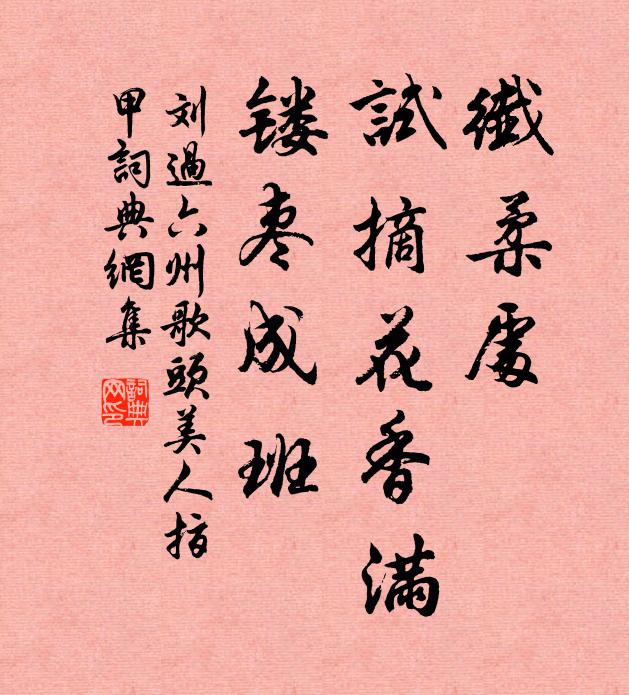 纖柔處
試摘花香滿
镂枣成班
刘過六州歌頭美人指
甲詞典網集
詞典
网印